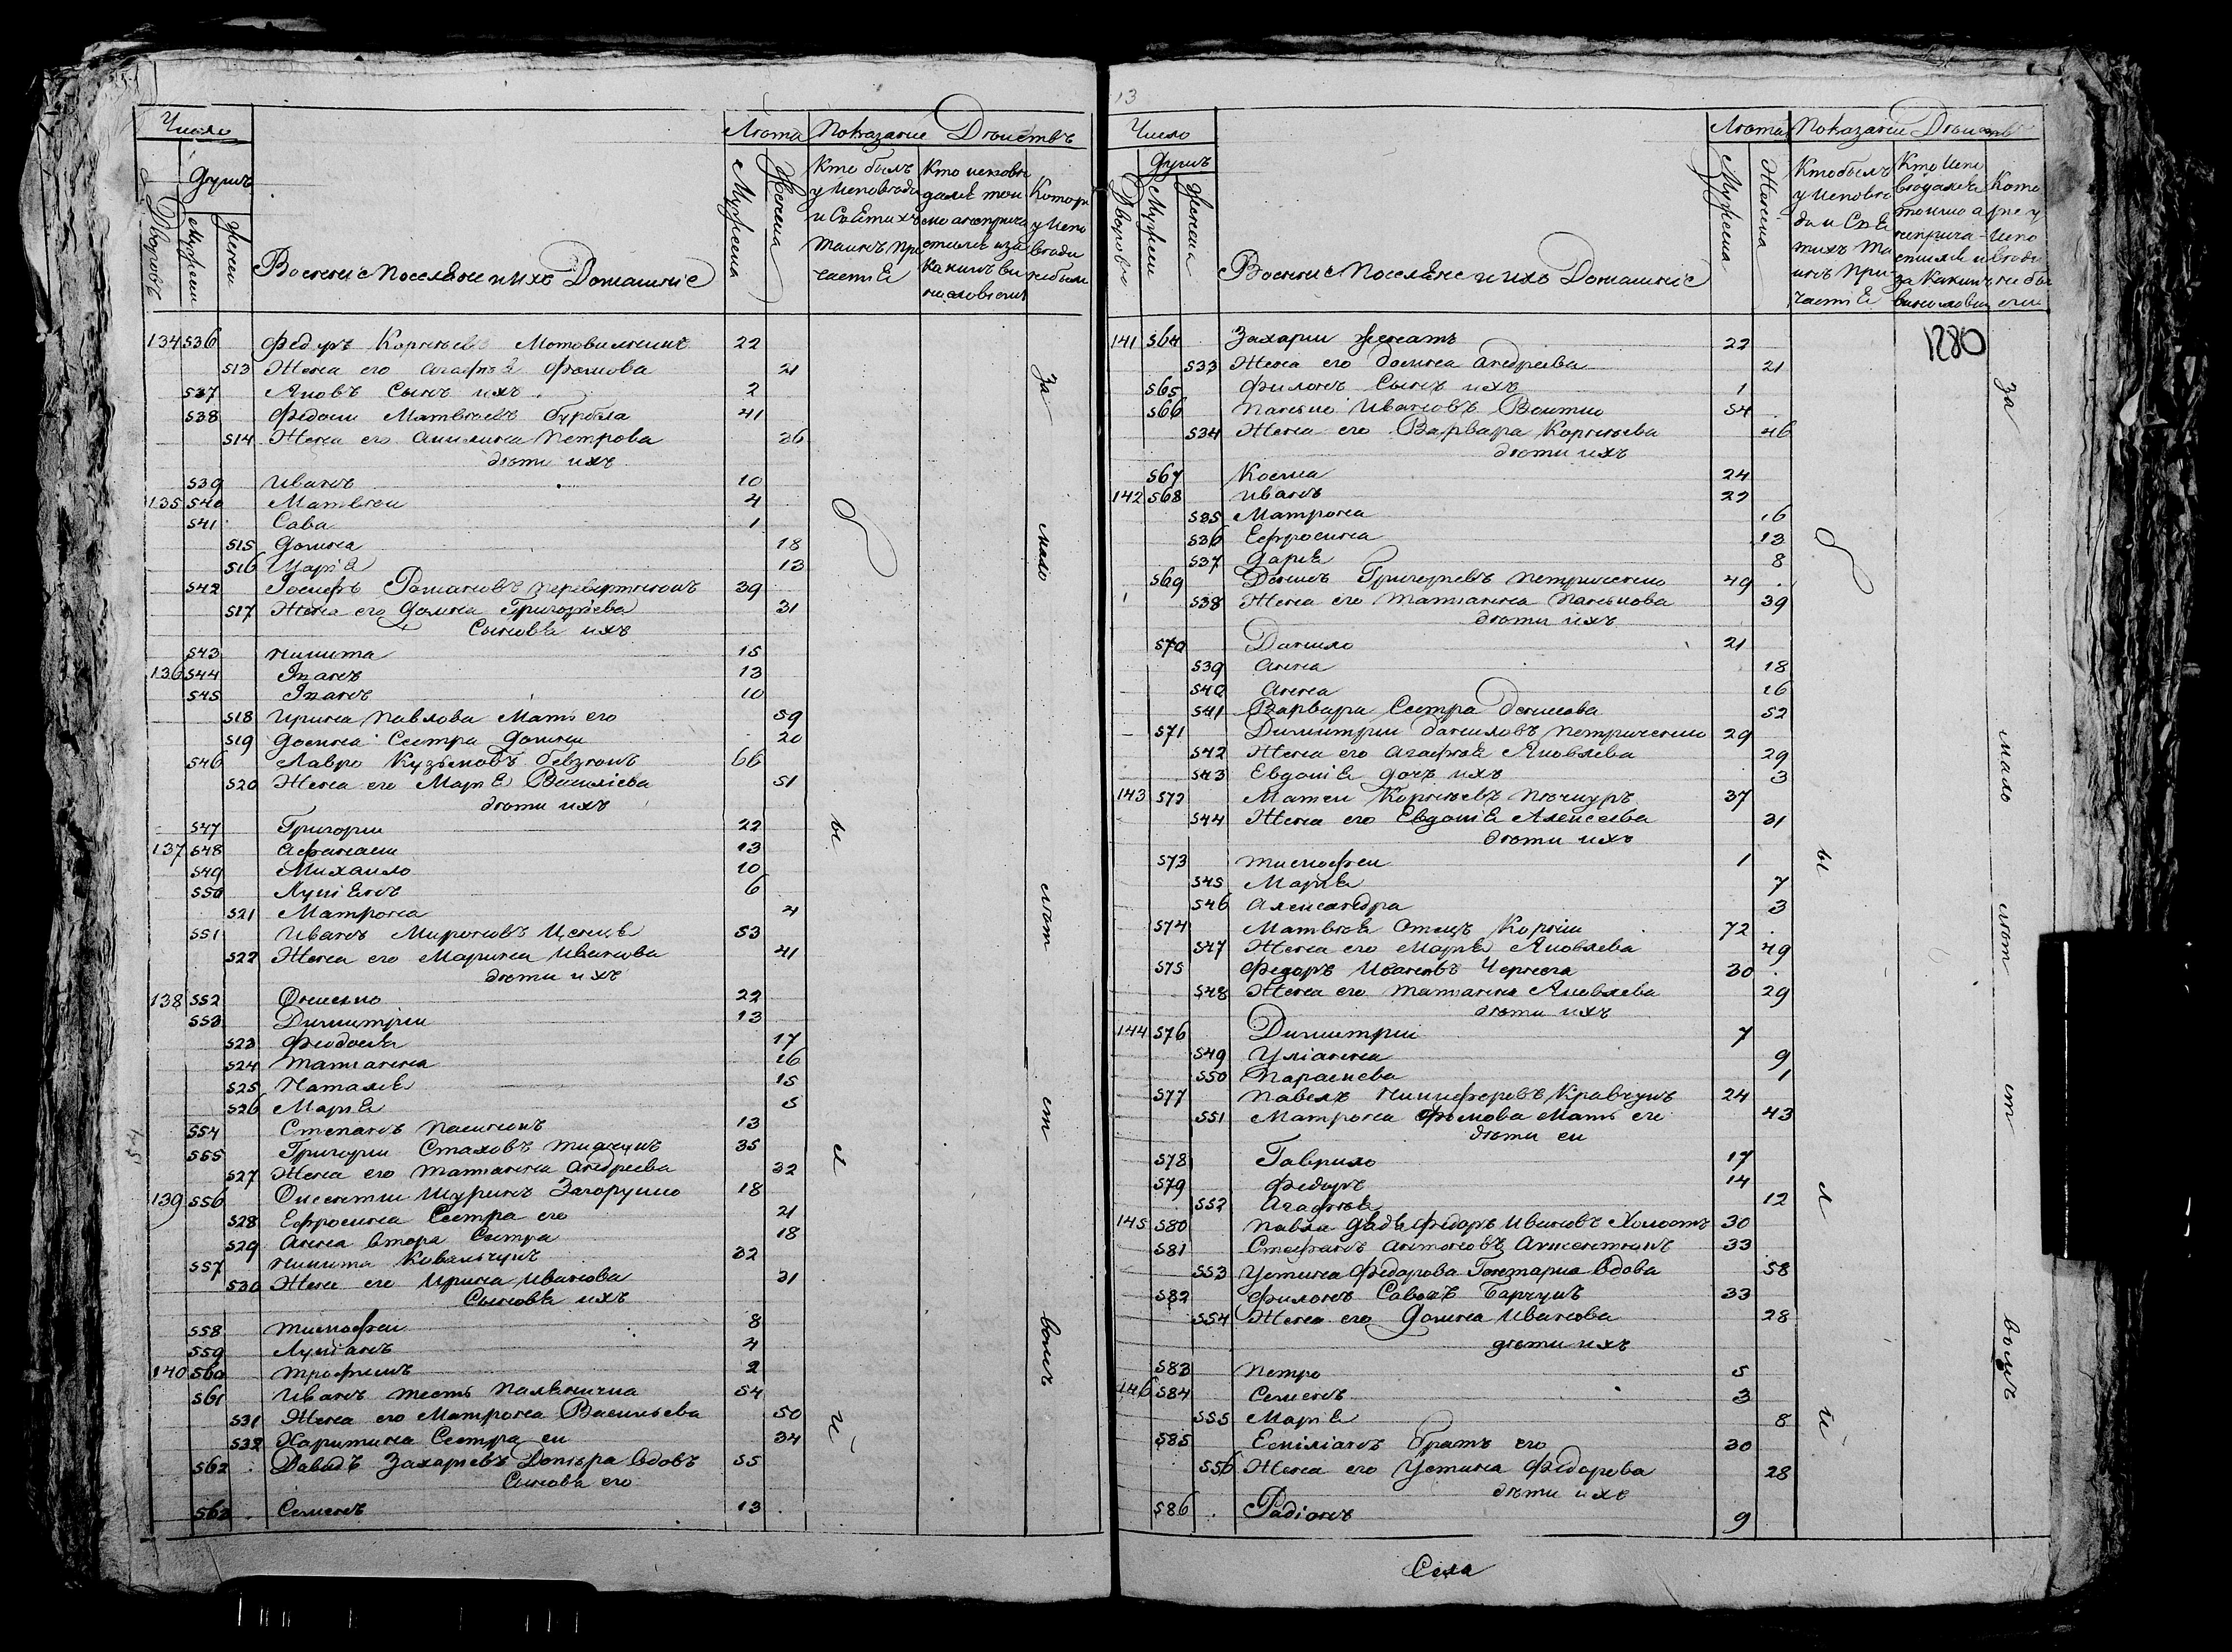 Число
Душъ
Дворовъ
Мужеска
Женска
Военніе поселяне и ихъ Домашніе
Лѣта
Мужеска
Женска
Показаніе Дѣйствъ
Кто былъ у исповѣди и Святыхъ таинъ при частія
Кто исповѣ дался токмо а не прича стился и за какимъ ви нословіемъ
Которіе у испо вѣди не были
134 536 Федоръ Корнѣевъ Мотовилникъ 22
513 Жена его Агафія Фомова 21
537 Яковъ Сынъ ихъ 2
538 Федоси Матвѣевъ Бурбела 41
514 Жена его Акилина Петрова 36
дѣти ихъ
539 Иванъ 10
135 540 Матвѣи 4
541 Сава 1
515 Домна 18
516 Марія 13
542 Іосифъ Романовъ 39
517 Жена его Домна Григоріева 31
Сыновя ихъ
543 Никита 15
136 544 Игнатъ 13
545 10
518 Ирина Павлова Мать его 59
519 Сестра Домни 20
546 Лавро Кузьмовъ 66
520 Жена его Марія Василіева 51
дѣти ихъ
547 Григорій 22
137 548 Афанасіи 13
549 Михаило 10
550 Лукіянъ 6
521 Матрона 4
551 Иванъ Мироновъ 53
522 Жена его Марина Иванова 41
дѣти ихъ
138 552 Онисько 22
553 Димитрій 13
523 Феодосія 17
524 Татіанна 16
525 Наталія 15
526 Марія 5
554 Степанъ Пасинокъ 13
555 Григорій Стаховъ Ткачукъ 35
527 Жена его Татіанна Андреева 32
139 556 Шуринъ Загоруико 18
528 Ефросина Сестра его 21
529 Анна втора Сестра 18
557 Никита Ковальчукъ 32
530 Жена его Ирина Иванова 31
Сыновя ихъ
558 Тимофеи 8
559 Лукіянъ 4
140 560 Трофимъ 2
561 Иванъ тесть 54
531 Жена его Матрона Васильева 50
532 Харитина Сестра еи 34
562 Давидъ Захаріевъ вдовъ 55
Сынова его
563 Семенъ 13
за мало лѣт ст вомъ
О н а
13
Число
Душъ
Дворовъ
Мужеска
Женска
Военніе поселяне и ихъ Домашніе
Лѣта
Мужеска
Женска
Показаніе Дѣйствъ
1280
141 564 Захарій женатъ 22
533 Жена его Андреева 21
565 Филонъ Сынъ ихъ 1
566 Панько Ивановъ Воитко 54
534 Жена его Варвара Корнѣева 46
дѣти ихъ
567 Косма 24
142 568 Иванъ 22
535 Матрона 16
536 Ефросина 13
537 Дарія 8
569 Денисъ Григоріевъ Петриченко 49
538 Жена его Татіанна Панькова 39
дѣти ихъ
570 Данило 21
539 Анна 18
540 Анна 16
541 Варвара Сестра Денисова 52
571 Димитрій Даниловъ Петриченко 29
542 Жена его Агафія Яковлева 29
543 Евдокія дочь ихъ 3
143 572 Матеи Корнѣевъ 37
544 Жена его Евдокія Алексеева 31
дѣти ихъ
573 Тимофеи 1
545 Марія 7
546 Александра 3
574 Матвѣя Отецъ Корнѣи 72
547 Жена его Марія Яковлева 49
575 Федоръ Ивановъ Чернега 30
548 Жена его Татіанна Яковлева 29
дѣти ихъ
144 576 Димитрій 7
549 Уліанна 9
550 Параскева 1
577 Павелъ Никифоровъ Кравчукъ 24
551 Матрона Фомова Мать его 43
дѣти еи
578 Гаврило 17
579 Федоръ 14
552 Агафія 12
145 580 Павла дядя Федоръ Ивановъ Холостъ 30
581 Стефанъ Антоновъ 33
553 Устина Федорова вдова 58
582 Филонъ Савовъ 33
554 Жена его Домна Иванова 28
дѣти ихъ
583 Петро 5
146 584 Семенъ 3
555 Марія 8
585 Емиліанъ братъ его 30
556 Жена его Устина Федорова 28
дѣти ихъ
586 Радіонъ 9
за мало лѣт ст вомъ
Села